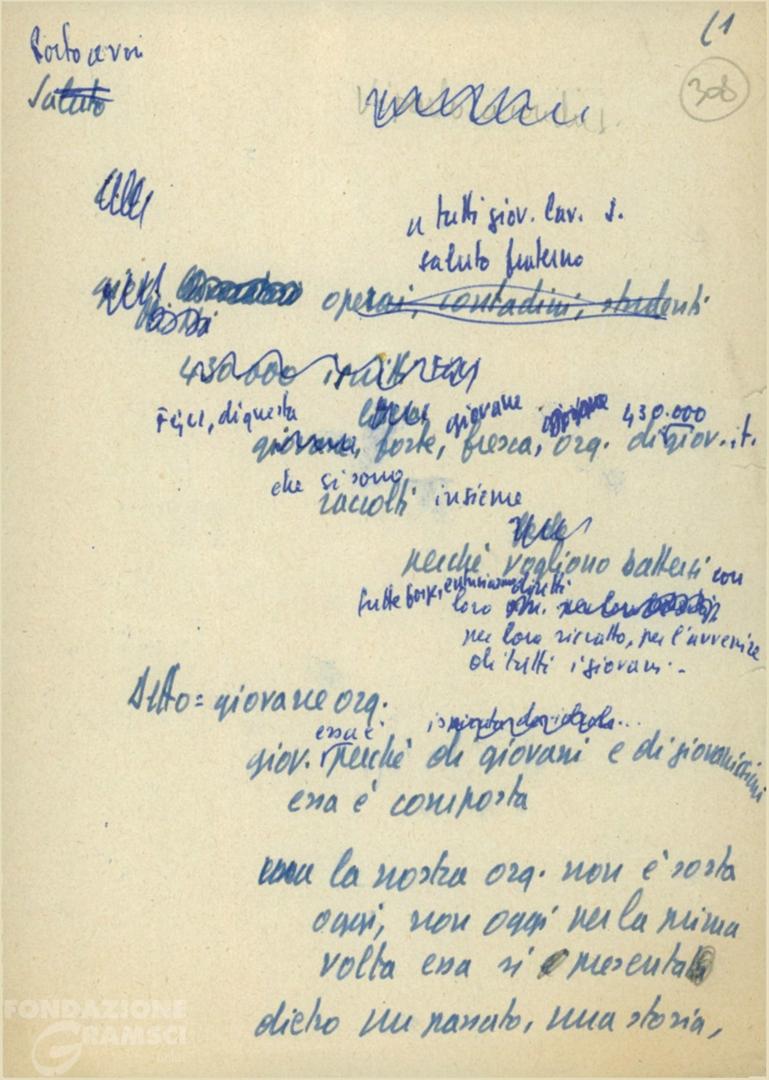 61
308
Porto a voi
Saluto
a tutti giov. lav. s.
saluto fraterno
operai, contadini, studenti
430.000 iscritti FGCI
FGCI, di questa giovane 430.000
giovane, forte, fresca, org. di giov. it.
che si sono
raccolti insieme
perché vogliono battersi con
tutte forze, entusiasmo diritti
loro per loro
per loro riscatto, per l'avvenire
di tutti i giovani -
Detto = giovane org.
essa è
giov. perché di giovani e di giovanissimi
essa è composta
la nostra org. non è sorta
oggi, non oggi per la prima
volta essa si presenta
dietro un passato, una storia,
FONDAZIONE
GRAMSCI